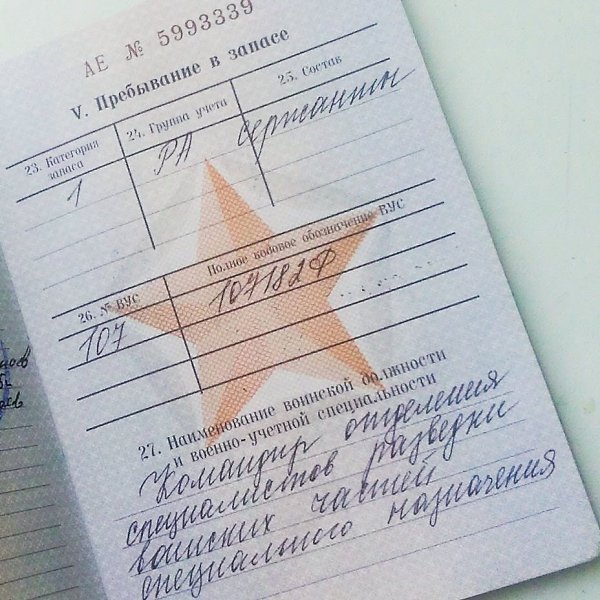 АЕ № 5993339
V. Пребывание в запасе
23. Категория запаса
24. Группа учета
25. Состав
1
РА
сержанты
26. № ВУС
Полное кодовое обозначение ВУС
107
107182Ф
27. Наименование воинской должности
и военно-учетной специальности
Командир отделения
специалистов разведки
воинских частей
специального назначения